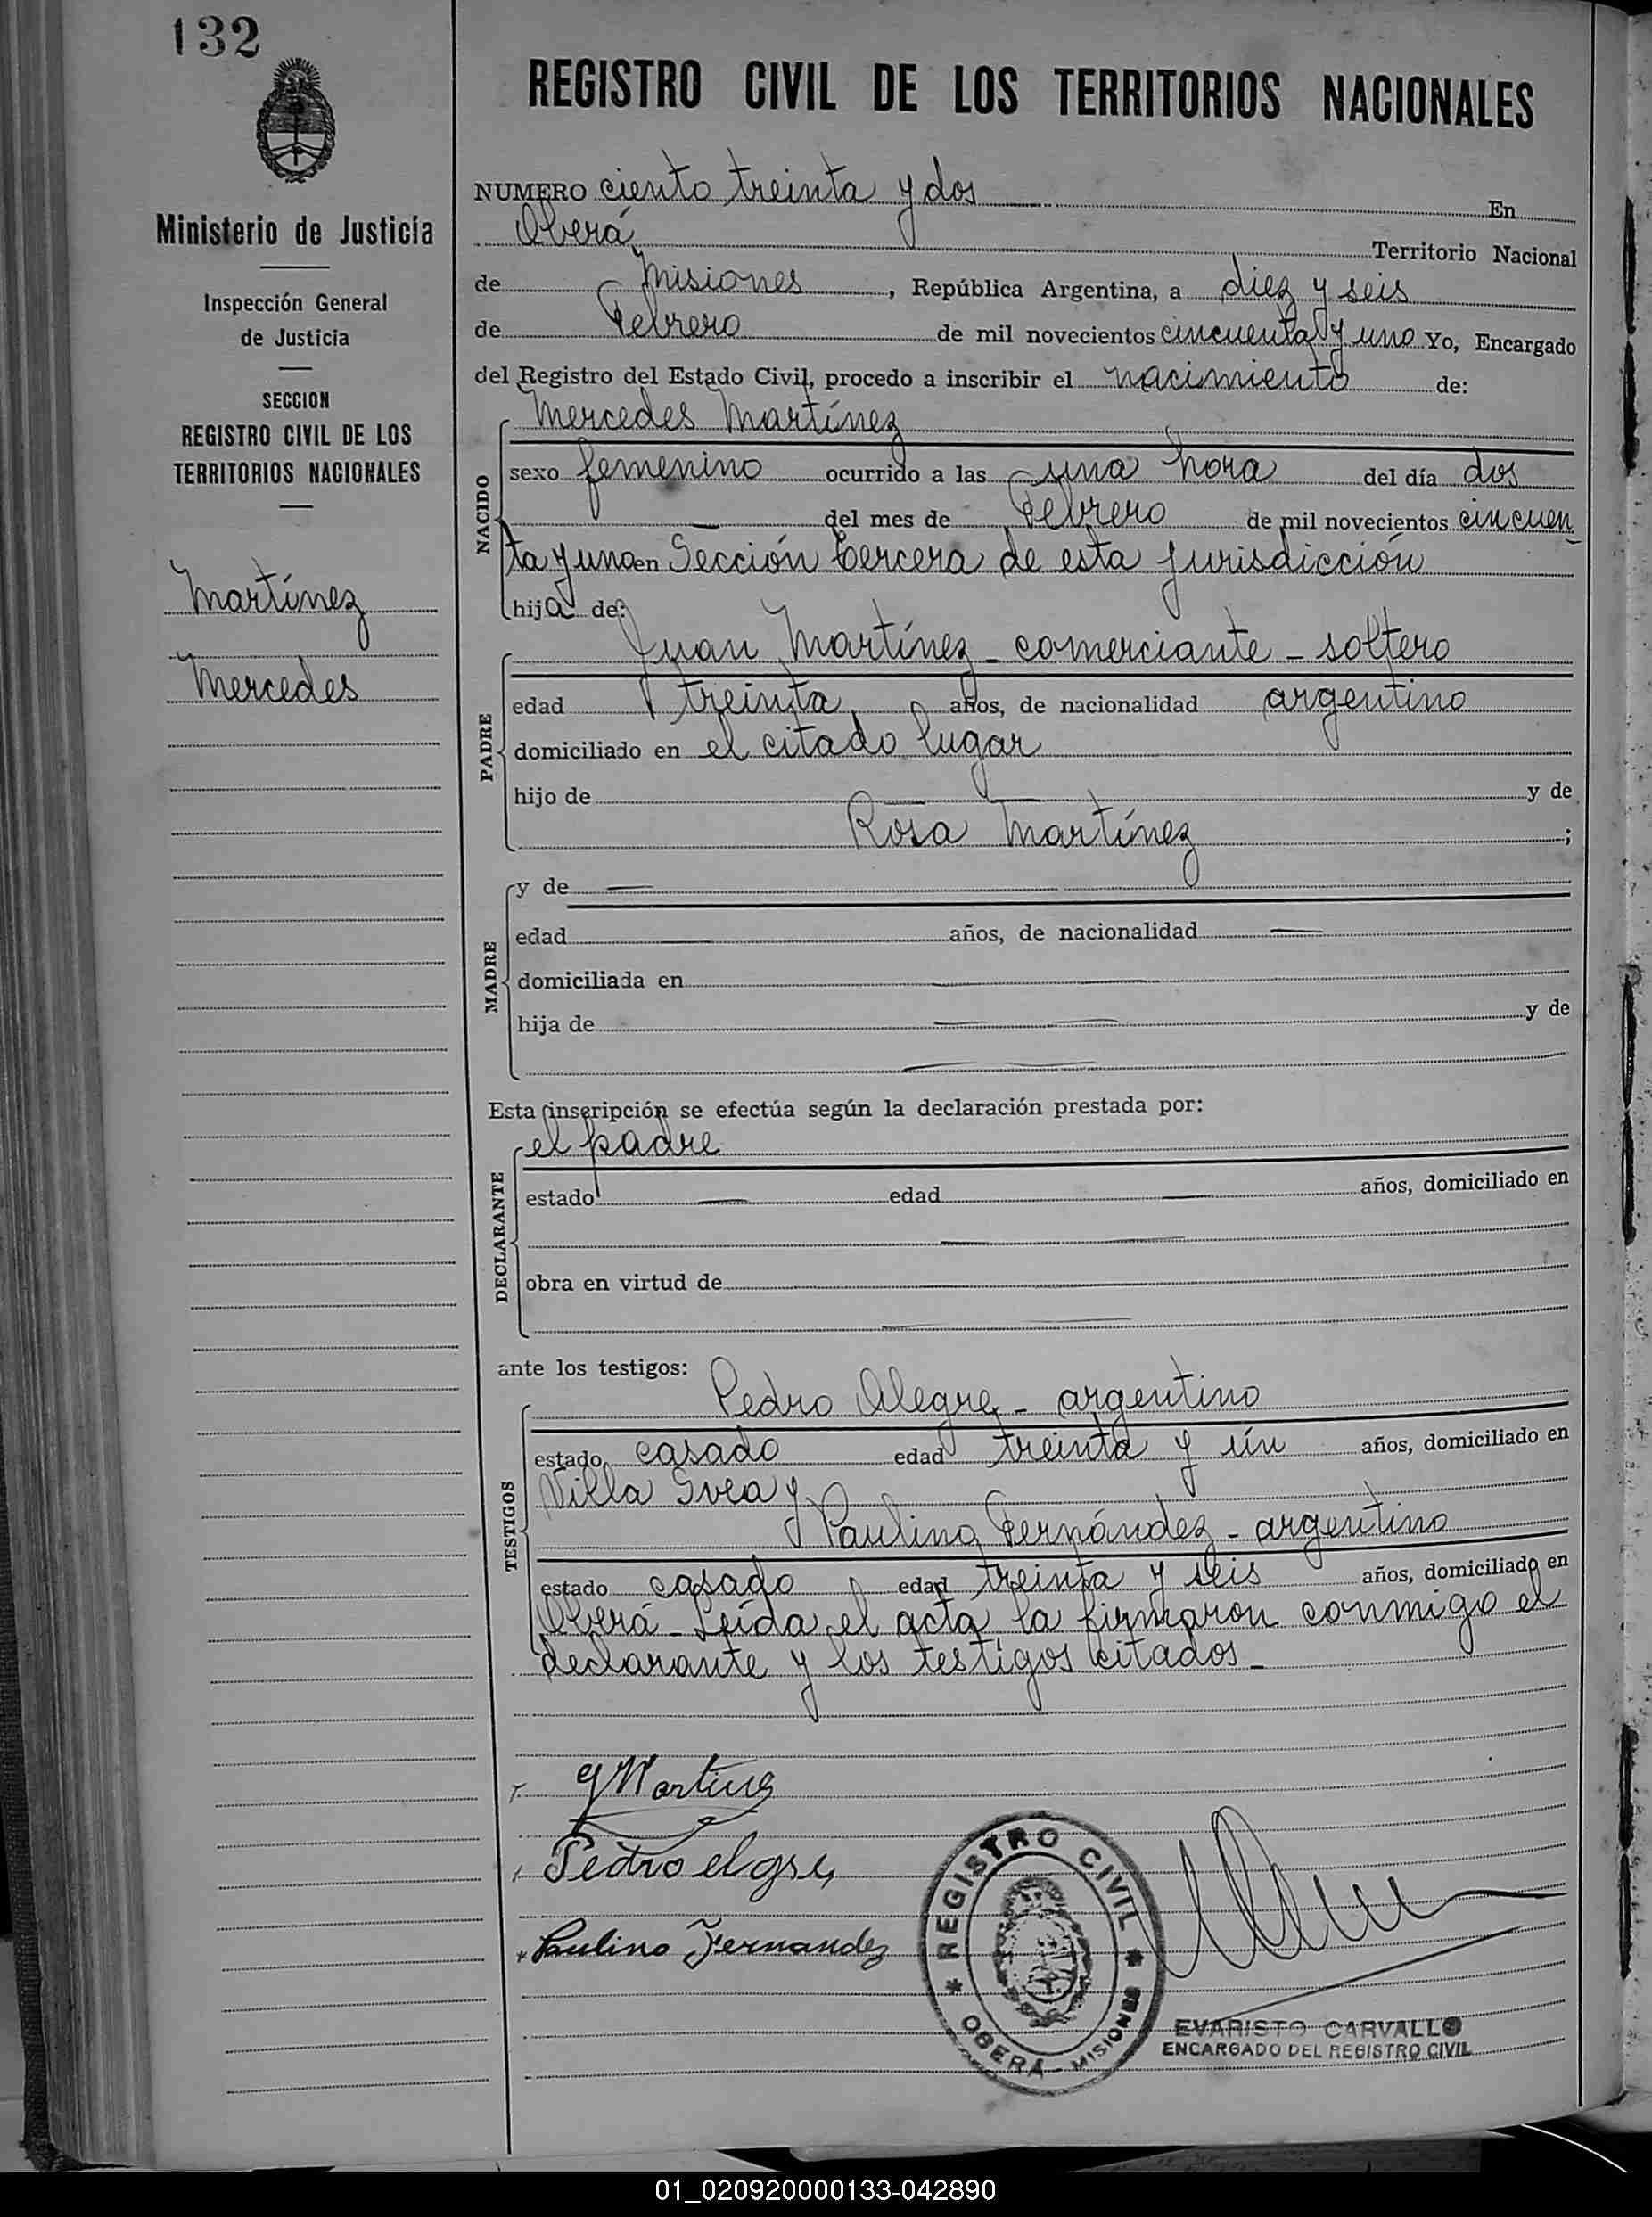 132
Ministerio de Justicia
Inspección General
de Justicia
SECCION
REGISTRO CIVIL DE LOS
TERRITORIOS NACIONALES
Martínez
Mercedes
REGISTRO CIVIL DE LOS TERRITORIOS NACIONALES
NUMERO ciento treinta y dos En
Oberá Territorio Nacional
de Misiones, República Argentina, a diez y seis
de Febrero de mil novecientos cincuenta y uno Yo, Encargado
del Registro del Estado Civil, procedo a inscribir el nacimiento de:
Mercedes Martínez
NACIDO
sexo femenino ocurrido a las una hora del día dos
del mes de Febrero de mil novecientos cincuen
ta y uno en Sección tercera de esta jurisdicción
hija de:
Juan Martínez - comerciante - soltero
PADRE
edad treinta años, de nacionalidad argentino
domiciliado en el citado lugar
hijo de y de
Rosa Martínez ;
MADRE
y de
edad años, de nacionalidad
domiciliada en
hija de y de
Esta inscripción se efectúa según la declaración prestada por:
el padre
DECLARANTE
estado edad años, domiciliado en
obra en virtud de
ante los testigos:
Pedro Alegre - argentino
TESTIGOS
estado casado edad treinta y ún años, domiciliado en
Villa Svea y
Paulino Fernández - argentino
estado casado edad treinta y seis años, domiciliado en
Oberá - Leída el acta la firmaron conmigo el
declarante y los testigos citados -
Paulino Fernandez
REGISTRO CIVIL
OBERA - MISIONES
EVARISTO CARVALLO
ENCARGADO DEL REGISTRO CIVIL
01_020920000133-042890